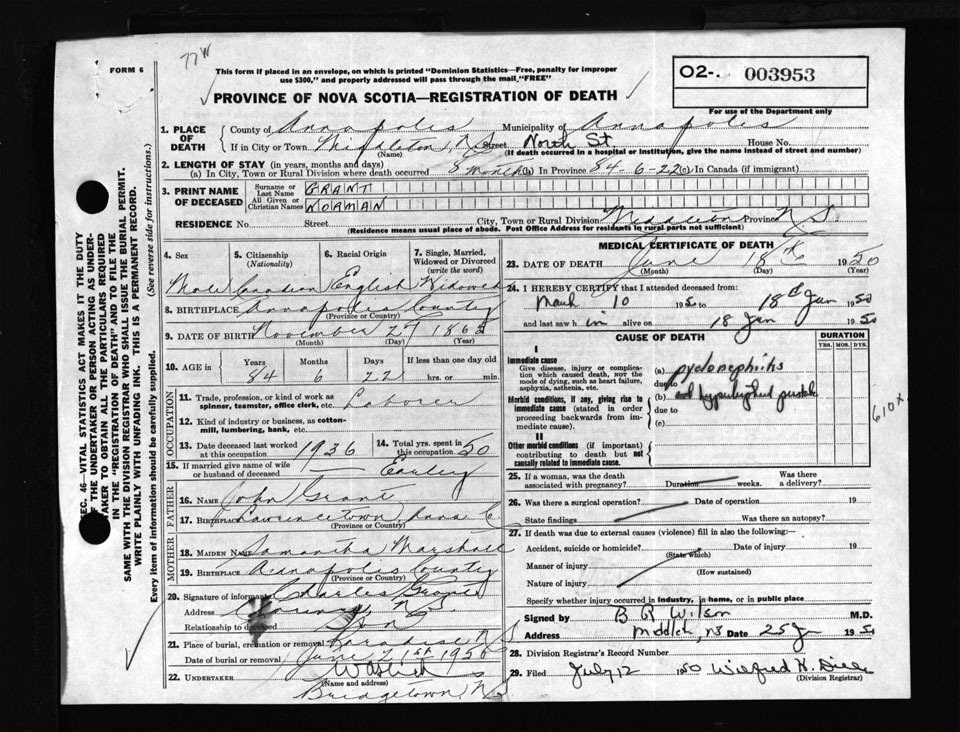 77W
FORM 6
This form if placed in an envelope, on which is printed "Dominion Statistics—Free, penalty for improper
use $300," and properly addressed will pass through the mail, "FREE"
O2-. 003953
For use of the Department only
PROVINCE OF NOVA SCOTIA—REGISTRATION OF DEATH
SEC. 46—VITAL STATISTICS ACT MAKES IT THE DUTY
OF THE UNDERTAKER OR PERSON ACTING AS UNDER-
TAKER TO OBTAIN ALL THE PARTICULARS REQUIRED
IN THE "REGISTRATION OF DEATH" AND TO FILE THE
SAME WITH THE DIVISION REGISTRAR WHO SHALL ISSUE THE BURIAL PERMIT.
WRITE PLAINLY WITH UNFADING INK. THIS IS A PERMANENT RECORD.
Every item of information should be carefully supplied. (See reverse side for instructions.)
1. PLACE OF DEATH
County of Annapolis Municipality of Annapolis
If in City or Town Middleton N S Street North St. House No.
(Name) (If death occurred in a hospital or institution, give the name instead of street and number)
2. LENGTH OF STAY (in years, months and days)
(a) In City, Town or Rural Division where death occurred 8 months (b) In Province 84-6-22 (c) In Canada (if immigrant)
3. PRINT NAME OF DECEASED
Surname or Last Name GRANT
All Given or Christian Names NORMAN
RESIDENCE No. Street City, Town or Rural Division Middleton Province N S.
(Residence means usual place of abode. Post Office Address for residents in rural parts not sufficient)
4. Sex
5. Citizenship (Nationality)
6. Racial Origin
7. Single, Married, Widowed or Divorced (write the word)
Male Canadian English Widowed
8. BIRTHPLACE Annapolis County
(Province or Country)
9. DATE OF BIRTH November 27 1865
(Month) (Day) (Year)
10. AGE in Years Months Days If less than one day old
84 6 22 hrs. or min.
OCCUPATION
11. Trade, profession, or kind of work as spinner, teamster, office clerk, etc. Laborer
12. Kind of industry or business, as cotton-mill, lumbering, bank, etc.
13. Date deceased last worked at this occupation 1936
14. Total yrs. spent in this occupation 50
15. If married give name of wife or husband of deceased
FATHER
16. NAME John Grant
17. BIRTHPLACE Lawrencetown Anna C
(Province or Country)
MOTHER
18. MAIDEN NAME Samantha Marshall
19. BIRTHPLACE Annapolis County
(Province or Country)
20. Signature of informant Charles Grant
Address N.S.
Relationship to deceased Son
21. Place of burial, cremation or removal Paradise N S
Date of burial or removal June 21st 1950
22. UNDERTAKER
(Name and address)
Bridgetown, N S
MEDICAL CERTIFICATE OF DEATH
23. DATE OF DEATH June 18th 1950
(Month) (Day) (Year)
24. I HEREBY CERTIFY that I attended deceased from:
10 1950 to 18 1950
and last saw him alive on 18 1950
CAUSE OF DEATH
DURATION
YRS. MOS. DYS.
I
Immediate cause
Give disease, injury or complication which caused death, not the mode of dying, such as heart failure, asphyxia, asthenia, etc.
(a) pyelonephritis
due to
Morbid conditions, if any, giving rise to immediate cause (stated in order proceeding backwards from immediate cause).
(b)
due to
(c)
610X
II
Other morbid conditions (if important) contributing to death but not causally related to immediate cause.
25. If a woman, was the death associated with pregnancy? Duration weeks. Was there a delivery?
26. Was there a surgical operation? Date of operation 19
State findings Was there an autopsy?
27. If death was due to external causes (violence) fill in also the following:—
Accident, suicide or homicide? Date of injury 19
(State which)
Manner of injury
(How sustained)
Nature of injury
Specify whether injury occurred in industry, in home, or in public place
Signed by B R Wilson M.D.
Address NS Date 25 1950
28. Division Registrar's Record Number
29. Filed July 12 1950 Wilfred H.
(Division Registrar)